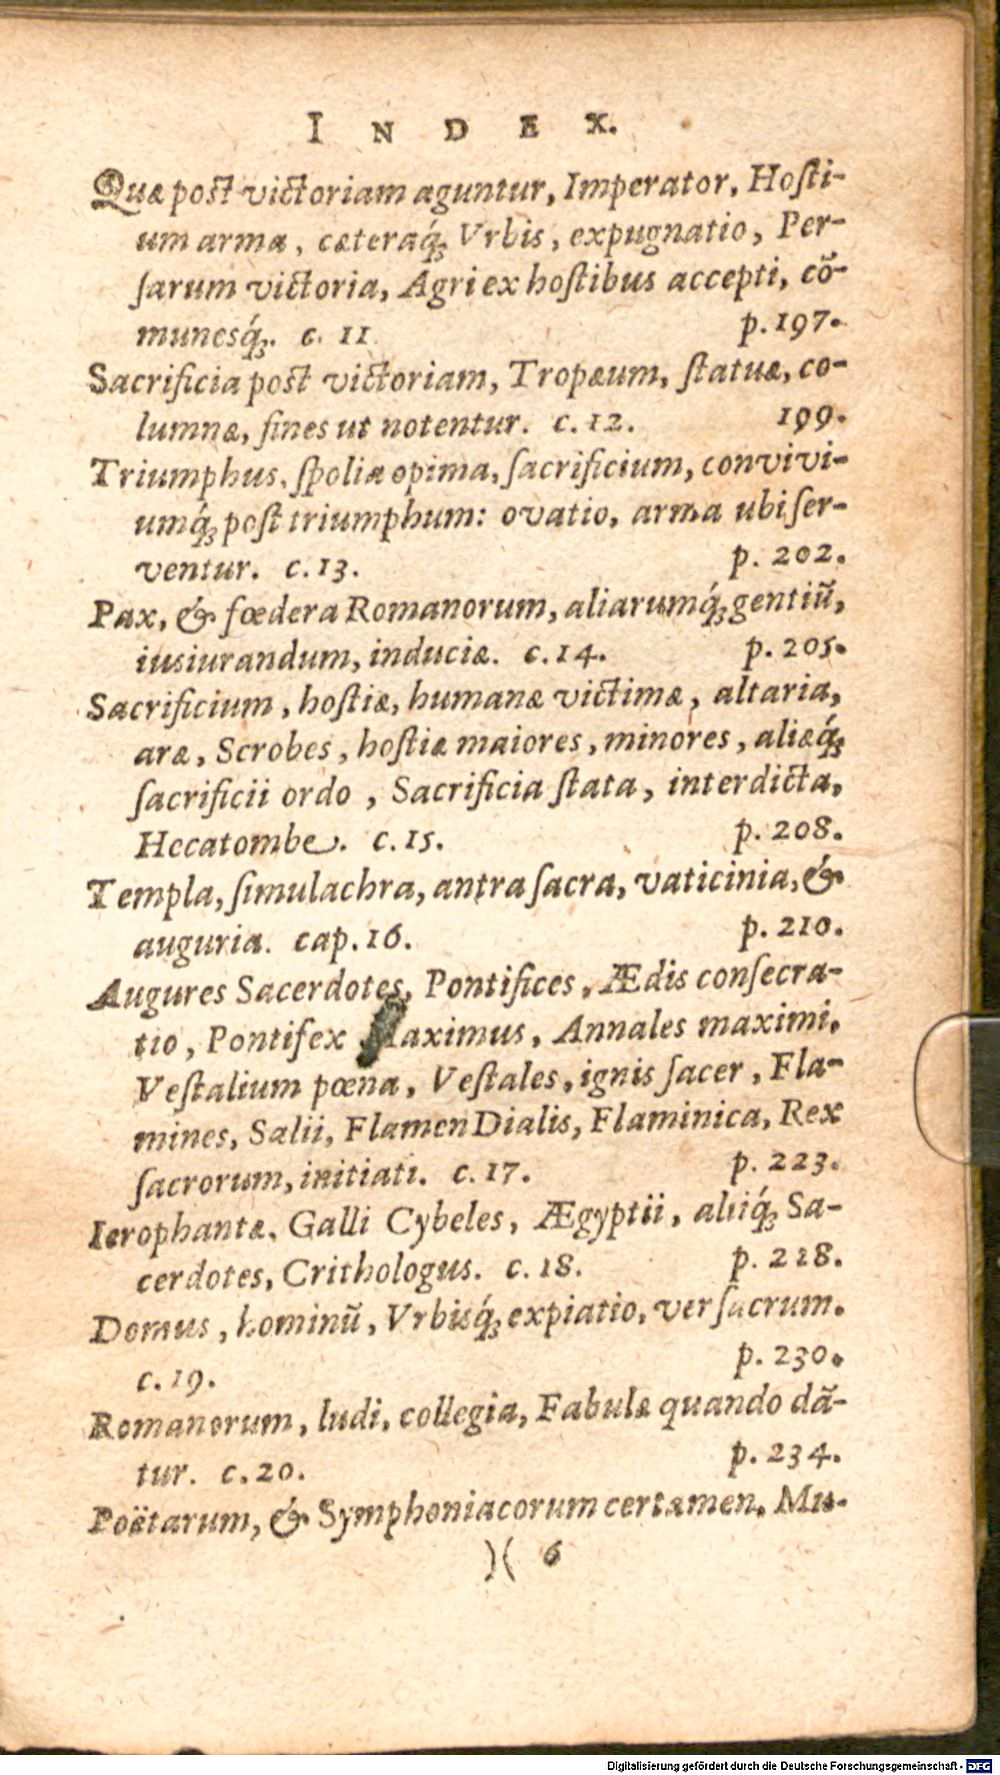 INDEX.
Quæ post victoriam aguntur, Imperator, Hosti-
um arma, cæteraq́; Vrbis, expugnatio, Per-
sarum victoria, Agri ex hostibus accepti, cō-
munesq́;. c. 11 p. 197.
Sacrificia post victoriam, Tropæum, statuæ, co-
lumnæ, fines ut notentur. c. 12. 199.
Triumphus, spolia opima, sacrificium, convivi-
umq́; post triumphum: ovatio, arma ubi ser-
ventur. c. 13. p. 202.
Pax, & fœdera Romanorum, aliarumq́; gentiū,
iusiurandum, induciæ. c. 14. p. 205.
Sacrificium, hostiæ, humanæ victimæ, altaria,
aræ, Scrobes, hostiæ maiores, minores, aliæq́;
sacrificii ordo, Sacrificia stata, interdicta,
Hecatombe. c. 15. p. 208.
Templa, simulachra, antra sacra, vaticinia, &
auguria. cap. 16. p. 210.
Augures Sacerdotes, Pontifices, Ædis consecra-
tio, Pontifex Maximus, Annales maximi,
Vestalium pœna, Vestales, ignis sacer, Fla-
mines, Salii, Flamen Dialis, Flaminica, Rex
sacrorum, initiati. c. 17. p. 223.
Ierophantæ, Galli Cybeles, Ægyptii, aliiq́; Sa-
cerdotes, Crithologus. c. 18. p. 228.
Domus, hominū, Vrbisq́; expiatio, ver sacrum.
c. 19. p. 230.
Romanorum, ludi, collegia, Fabulæ quando dā-
tur. c. 20. p. 234.
Poëtarum, & Symphoniacorum certamen, Mu-
)( 6
Digitalisierung gefördert durch die Deutsche Forschungsgemeinschaft - DFG